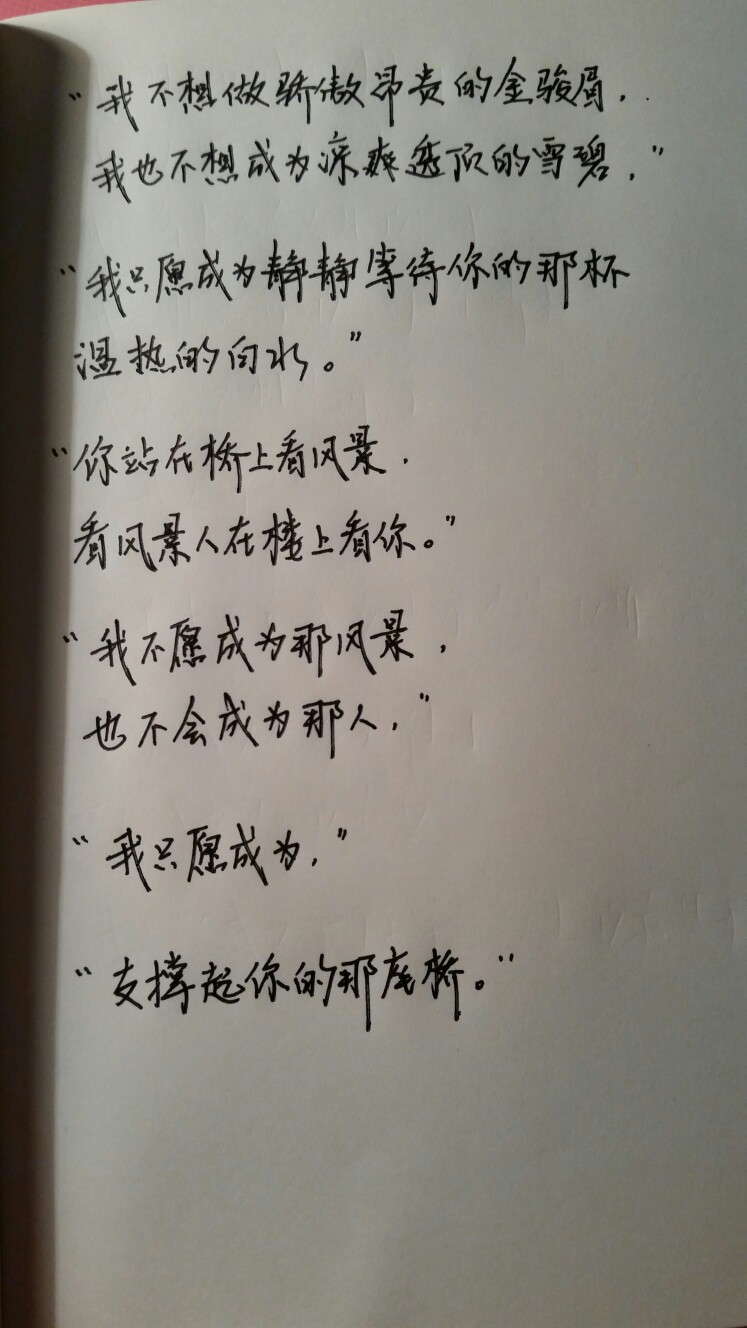 “我不想做骄傲昂贵的金骏眉，
我也不想成为凉爽透顶的雪碧，”
“我只愿成为静静等待你的那杯
温热的白水。”
“你站在桥上看风景，
看风景人在楼上看你。”
“我不愿成为那风景，
也不会成为那人，”
“我只愿成为，”
“支撑起你的那座桥。”